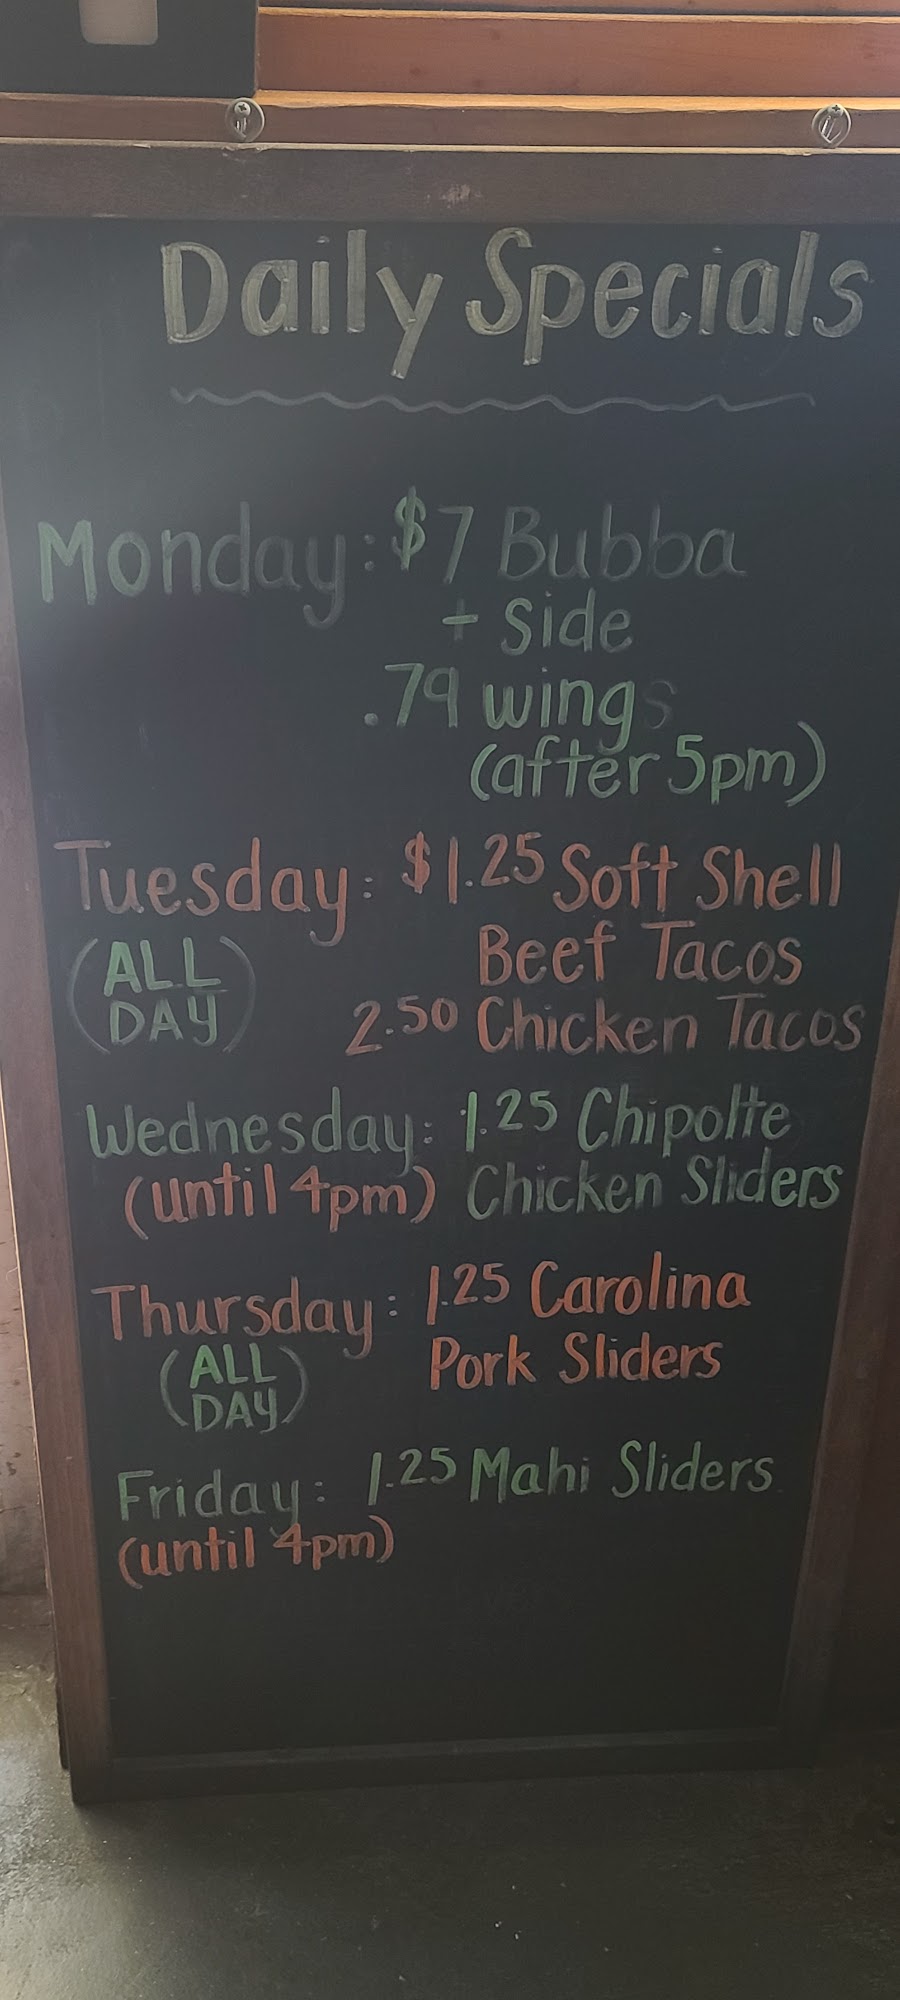 Daily Specials
Monday: $7 Bubba
+ side
.79 wings
(after 5pm)
Tuesday: $1.25 Soft Shell
(ALL Beef Tacos
DAY) 2.50 Chicken Tacos
Wednesday: 1.25 Chipolte
(until 4pm) Chicken Sliders
Thursday: 1.25 Carolina
(ALL Pork Sliders
DAY)
Friday: 1.25 Mahi Sliders
(until 4pm)